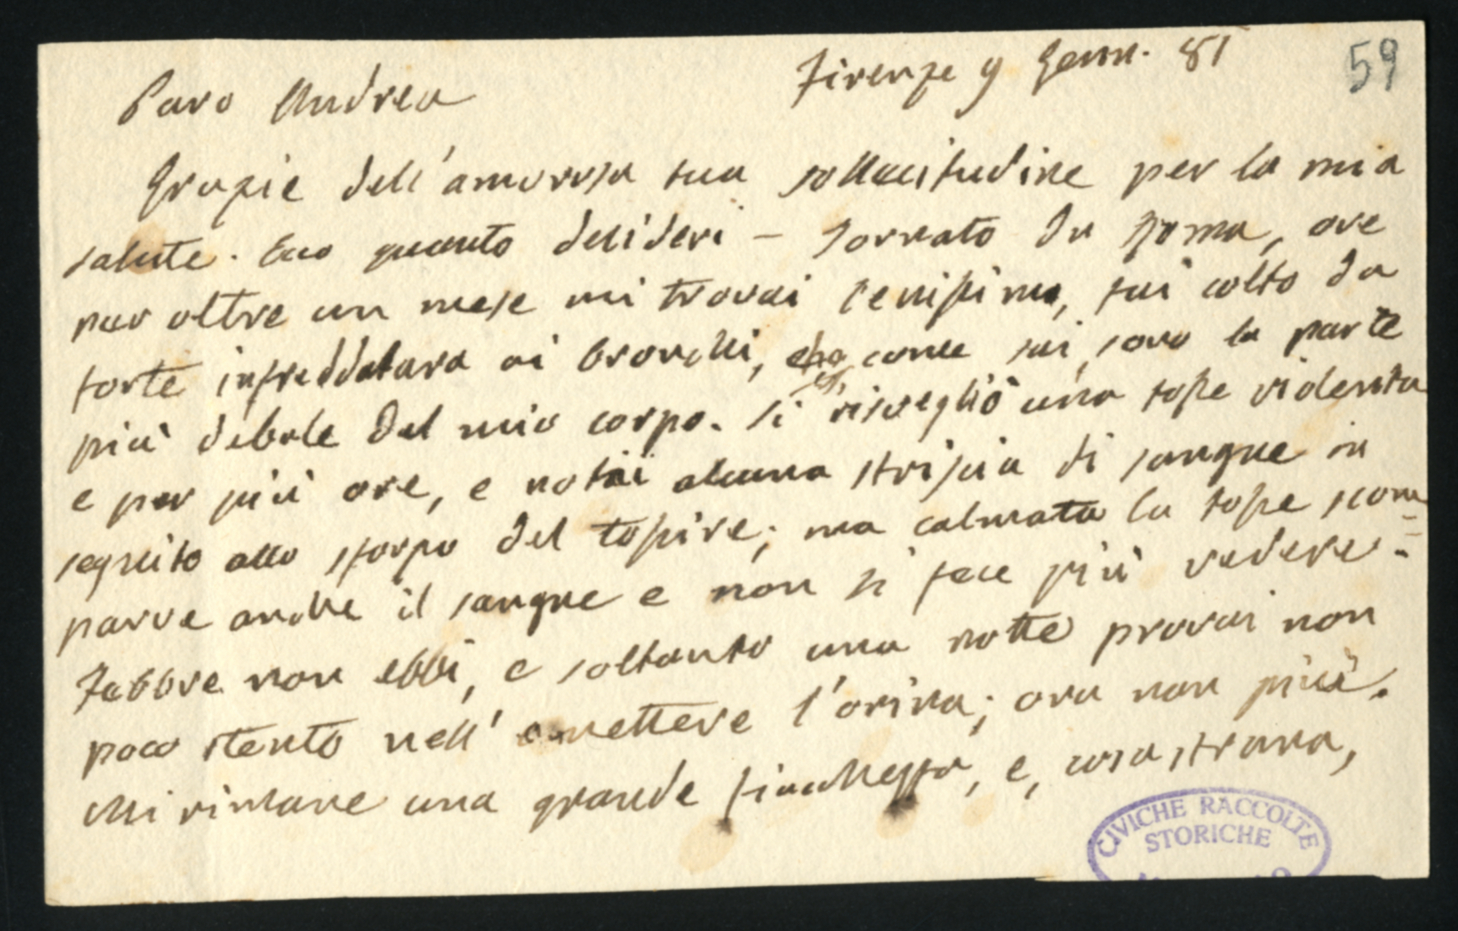 Firenze 9 Genn. 81
59
Caro Andrea
Grazie dell'amorosa tua sollecitudine per la mia
salute. Ecco quanto desideri – Tornato da Roma, ove
per oltre un mese mi trovai benissimo, fui colto da
forte infreddatura ai bronchi, che come sai, sono la parte
più debole del mio corpo. Si risvegliò una tosse violenta
e per più ore, e notai alcuna striscia di sangue in
seguito allo sforzo del tossire; ma calmata la tosse scom=
parve anche il sangue e non si fece più vedere.
Febbre non ebbi, e soltanto una notte provai non
poco stento nell'emettere l'orina; ora non più.
Mi rimane una grande fiacchezza, e, cosa strana,
CIVICHE RACCOLTE
STORICHE